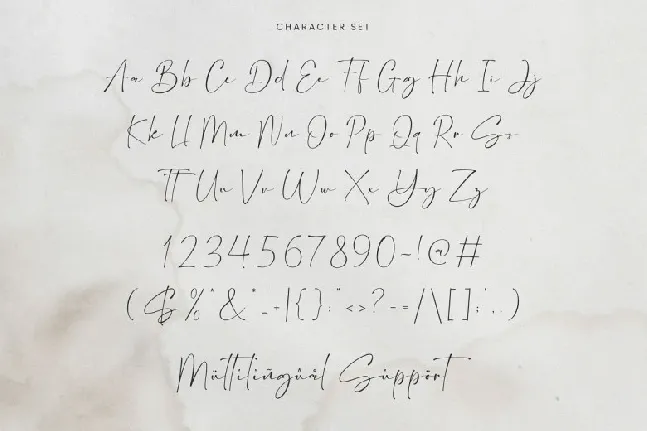 CHARACTER SET
Aa Bb Cc Dd Ee Ff Gg Hh Ii Jj
Kk Ll Mm Nn Oo Pp Qq Rr Ss
Tt Uu Vv Ww Xx Yy Zz
1234567890~!@#
($%^&*_+|{}:"<>?`-=/\[];',.)
Mültilíñgúål Süppört